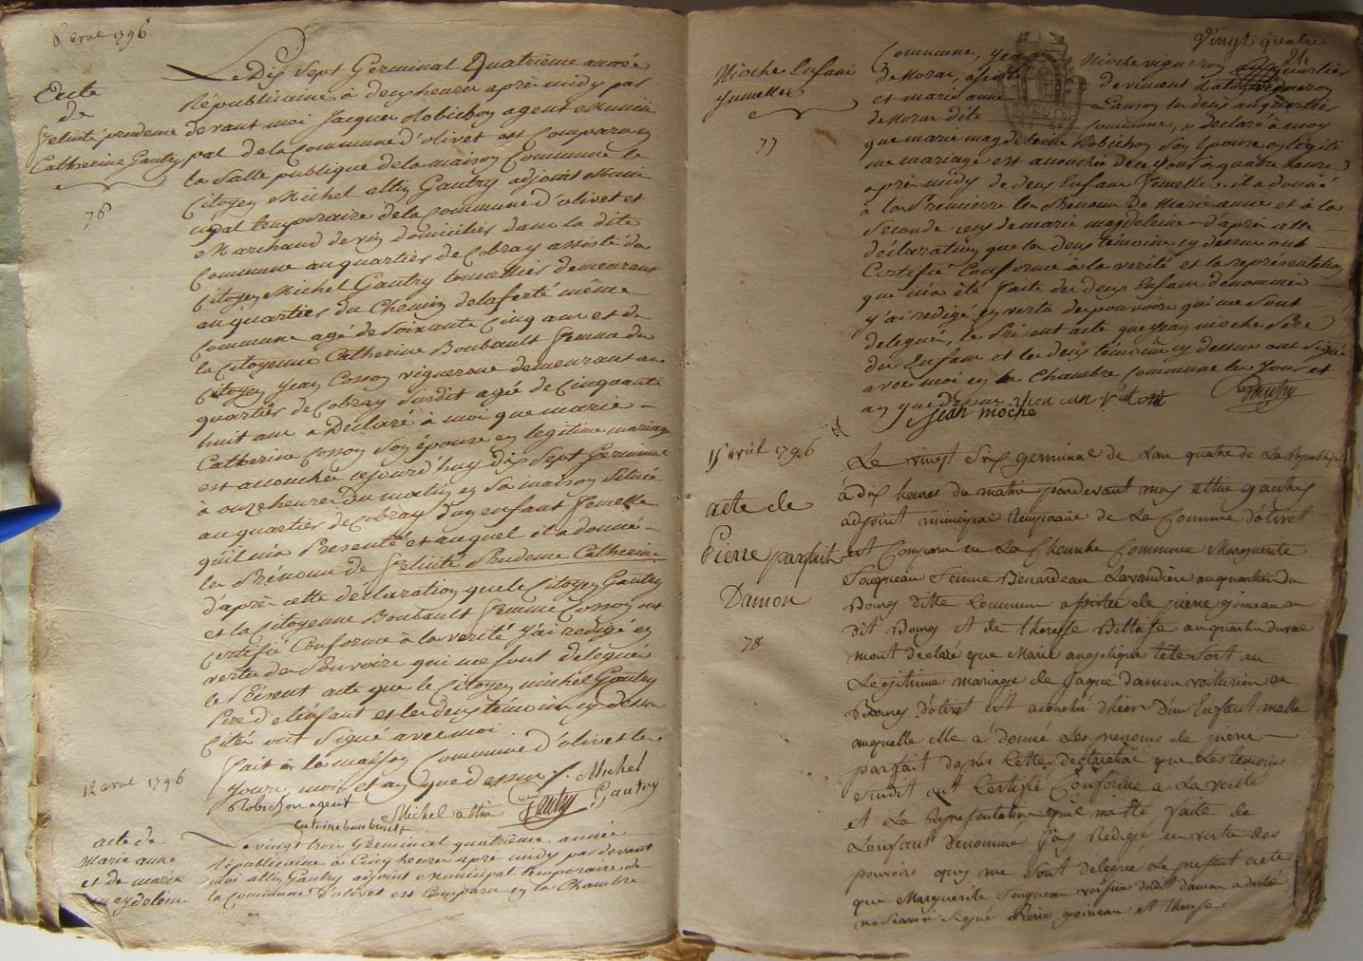 6 avril 1796
Acte
de
felicité prudence
Catherine Gautry
76
Le Dix Sept Germinal Quatrieme année
Républicaine à deux heures après midy par
devant moi Jacques Robichon agent Munici
pal de la Commune d'olivet est Comparu en
la Salle publique de la maison Commune le
Citoyen Michel altin Gautry adjoint Muni
cipal temporaire de la Commune d'olivet et
Marchand de vin domicilié dans la dite
Commune au quartier de Cobray assisté du
Citoyen Michel Gautry tonnellier demeurant
au quartier du Chemin de la ferté même
Commune agé de Soixante Cinq ans et de
la Citoyenne Catherine Boubault femme du
Citoyen Jean Cosson vigneron demeurant au
quartier de Cobray Susdit agée de Cinquante
huit ans a Déclaré à moi que marie
Catherine Cosson Son épouse en legitime mariage
est accouchée aujourd'huy dix Sept Germinal
à onze heures du matin en Sa maison Située
au quartier de Cobray d'un enfant femelle
qu'il m'a Presenté et auquel il a donné
les Prénoms de felicité Prudence Catherine
d'après cette declaration que le Citoyen Gautry
et la Citoyenne Boubault femme Cosson ont
Certifié Conforme à la verité j'ai redigé en
vertu des Pouvoirs qui me sont delegués
le Présent acte que le Citoyen michel Gautry
Père de l'enfant et les deux temoins cy dessus
Cités ont Signé avec moi
fait en la maison Commune d'olivet les
jours, mois et an que dessus
Michel
Gautry
Robichon agent
Michel altin Gautry
Catrine boubault
12 avril 1796
acte de
Marie anne
et de marie
magdeleine
Le vingt trois Germinal quatrieme année
Républicaine à Cinq heures après midy par devant
moi altin Gautry adjoint municipal temporaire de
la Commune d'olivet est Comparu en la Chambre
vingt quatre
Mioche Enfans
Jumelles
77
Commune, Jean Mioche vigneron
de Nozan, assisté
et marie anne
de Nozan dite Commune, a declaré à moy
que marie magdeleine Robichon Son Epouse en légiti
me mariage est accouchée de ce jour à quatre heures
après midy de deux Enfans femelles. il a donné
à la Premiere les Prénoms de Marie anne et à la
Seconde ceux de marie magdeleine d'après cette
déclaration que les deux témoins cy dessus ont
Certifié Conforme à la verité et la représentation
qui m'a été faite des deux Enfans dénommés
j'ai redigé en vertu des pouvoirs qui me sont
delegués, le Présent acte que Jean mioche Père
des Enfans et les deux témoins cy dessus ont Signé
avec moi en la Chambre Commune les Jour et
an que dessus
Jean mioche
Gautry
15 avril 1796
acte de
Pierre parfait
Damon
78
Le vingt Six germinal de L'an quatre de La République
à dix heures du matin pardevant moy altin gautry
adjoint municipal temporaire de La Commune d'olivet
est Comparu en La Chambre Commune Marguerite
Souqueau femme Benardeau Lavandiere au quartier du
Bourg ditte Commune assistée de pierre goineau au
dit Bourg et de therese au quartier du
mont declaré que Marie angelique
Legitime mariage de Jaque damon voiturier au
Bourg d'olivet est accouchée d'hier d'un Enfant malle
auquelle elle a donné Les prenoms de pierre
parfait dapres Cette declaration que Les temoins
susdit ont Certifié Conforme a La verité
et La representation quel ma été faite de
Lenfant denommé J'ay Redigé en vertu des
pouvoirs quy me sont delegué Le present acte
que Marguerite Souqueau voisine dudit damon a declaré
ne Savoir Signé Pierre goineau et therese